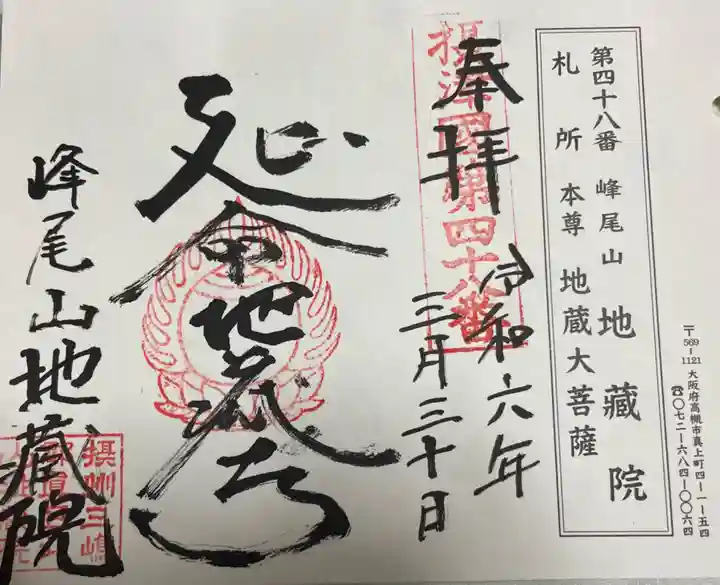 第四十八番 峰尾山 地蔵院
札所 本尊 地蔵大菩薩
〒569-1121 大阪府高槻市真上町四-1-五四
☎〇七二-六八四-〇〇六四
奉拝
摂津國第四十八番
令和六年
三月三十日
延命地蔵尊
峰尾山地蔵院
摂州三嶋